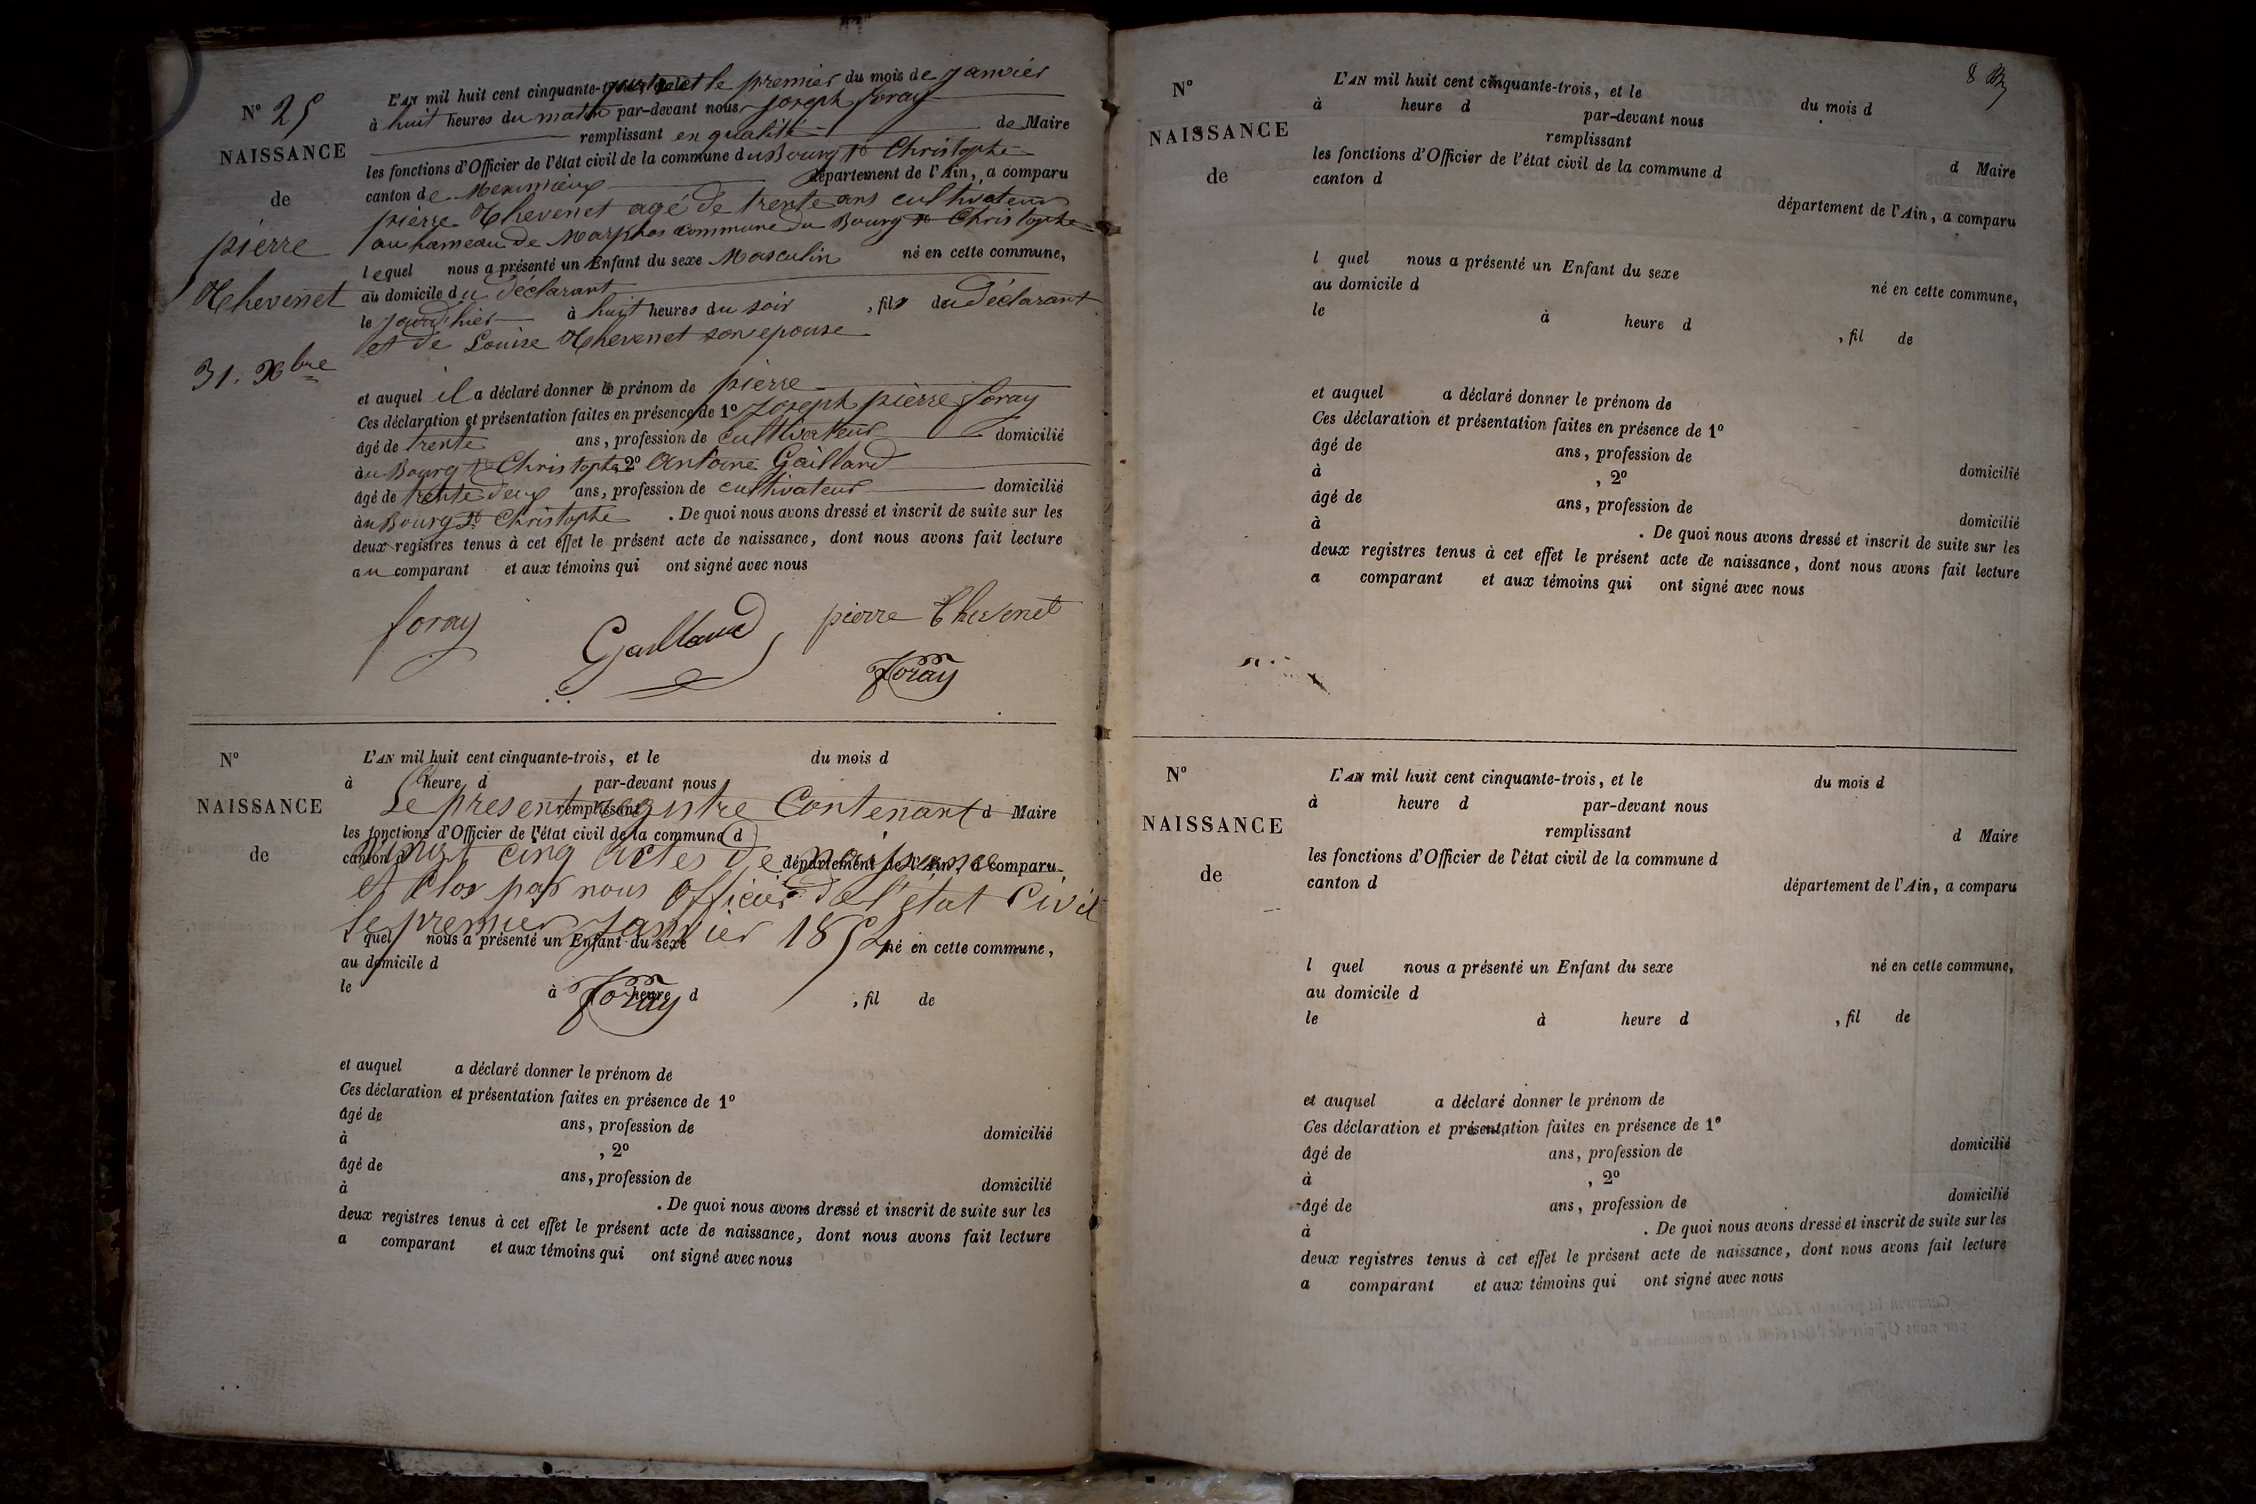 N° 25
NAISSANCE
de
pierre
Thevenet
31. Xbre
L'AN mil huit cent cinquante- et le premier du mois de janvier
à huit heures du matin par-devant nous joseph foray
remplissant en qualité de Maire
les fonctions d'Officier de l'état civil de la commune du Bourg St Christophe
canton de Meximieux département de l'Ain, a comparu
pierre Thevenet agé de trente ans cultivateur
au hameau de commune du Bourg St Christophe
lequel nous a présenté un Enfant du sexe Masculin né en cette commune,
au domicile du déclarant
le hier à huit heures du soir , fils du déclarant
et de Louise Thevenet son epouse
et auquel il a déclaré donner le prénom de pierre
Ces déclaration et présentation faites en présence de 1° joseph pierre foray
âgé de trente ans, profession de cultivateur domicilié
au Bourg St Christophe 2° antoine Gaillard
âgé de trente deux ans, profession de cultivateur domicilié
au Bourg St Christophe . De quoi nous avons dressé et inscrit de suite sur les
deux registres tenus à cet effet le présent acte de naissance, dont nous avons fait lecture
au comparant et aux témoins qui ont signé avec nous
foray Gaillard pierre Thevenet
Foray
N°
NAISSANCE
de
L'AN mil huit cent cinquante-trois, et le du mois d
à heure d par-devant nous
remplissant d Maire
Le present registre Contenant
les fonctions d'Officier de l'état civil de la commune d
canton d département de l'Ain, a comparu
vingt cinq actes de naissance
et Clos par nous Officier de l'état Civil
le premier janvier 1854
l quel nous a présenté un Enfant du sexe né en cette commune,
au domicile d
le à heure d , fil de
Foray
et auquel a déclaré donner le prénom de
Ces déclaration et présentation faites en présence de 1°
âgé de ans, profession de domicilié
à , 2°
âgé de ans, profession de domicilié
à . De quoi nous avons dressé et inscrit de suite sur les
deux registres tenus à cet effet le présent acte de naissance, dont nous avons fait lecture
a comparant et aux témoins qui ont signé avec nous
8
N°
NAISSANCE
de
L'AN mil huit cent cinquante-trois, et le du mois d
à heure d par-devant nous
remplissant d Maire
les fonctions d'Officier de l'état civil de la commune d
canton d département de l'Ain, a comparu
l quel nous a présenté un Enfant du sexe né en cette commune,
au domicile d
le à heure d , fil de
et auquel a déclaré donner le prénom de
Ces déclaration et présentation faites en présence de 1°
âgé de ans, profession de domicilié
à , 2°
âgé de ans, profession de domicilié
à . De quoi nous avons dressé et inscrit de suite sur les
deux registres tenus à cet effet le présent acte de naissance, dont nous avons fait lecture
a comparant et aux témoins qui ont signé avec nous
N°
NAISSANCE
de
L'AN mil huit cent cinquante-trois, et le du mois d
à heure d par-devant nous
remplissant d Maire
les fonctions d'Officier de l'état civil de la commune d
canton d département de l'Ain, a comparu
l quel nous a présenté un Enfant du sexe né en cette commune,
au domicile d
le à heure d , fil de
et auquel a déclaré donner le prénom de
Ces déclaration et présentation faites en présence de 1°
âgé de ans, profession de domicilié
à , 2°
âgé de ans, profession de domicilié
à . De quoi nous avons dressé et inscrit de suite sur les
deux registres tenus à cet effet le présent acte de naissance, dont nous avons fait lecture
a comparant et aux témoins qui ont signé avec nous